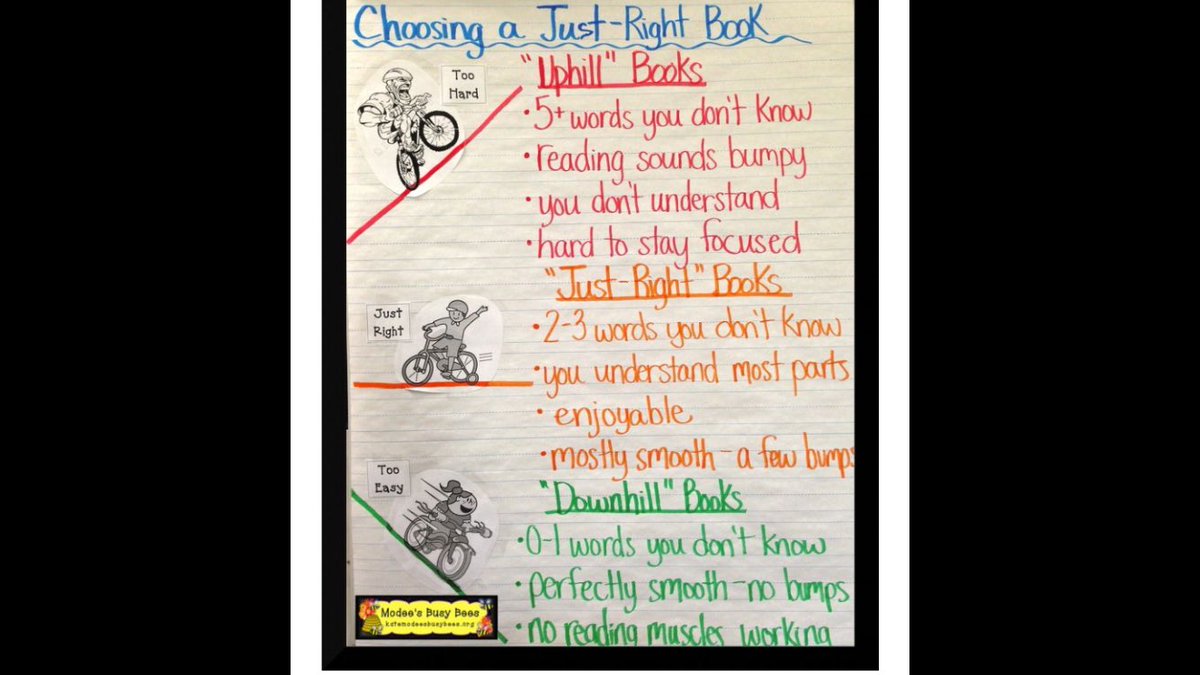 Choosing a Just-Right Book
Too
Hard
"Uphill" Books
•5+ words you don't know
•reading sounds bumpy
•you don't understand
•hard to stay focused
Just
Right
"Just-Right" Books
•2-3 words you don't know
•you understand most parts
•enjoyable
•mostly smooth-a few bumps
Too
Easy
"Downhill" Books
•0-1 words you don't know
•perfectly smooth-no bumps
•no reading muscles working
Modee's Busy Bees
kdfemodeesbusybees.org